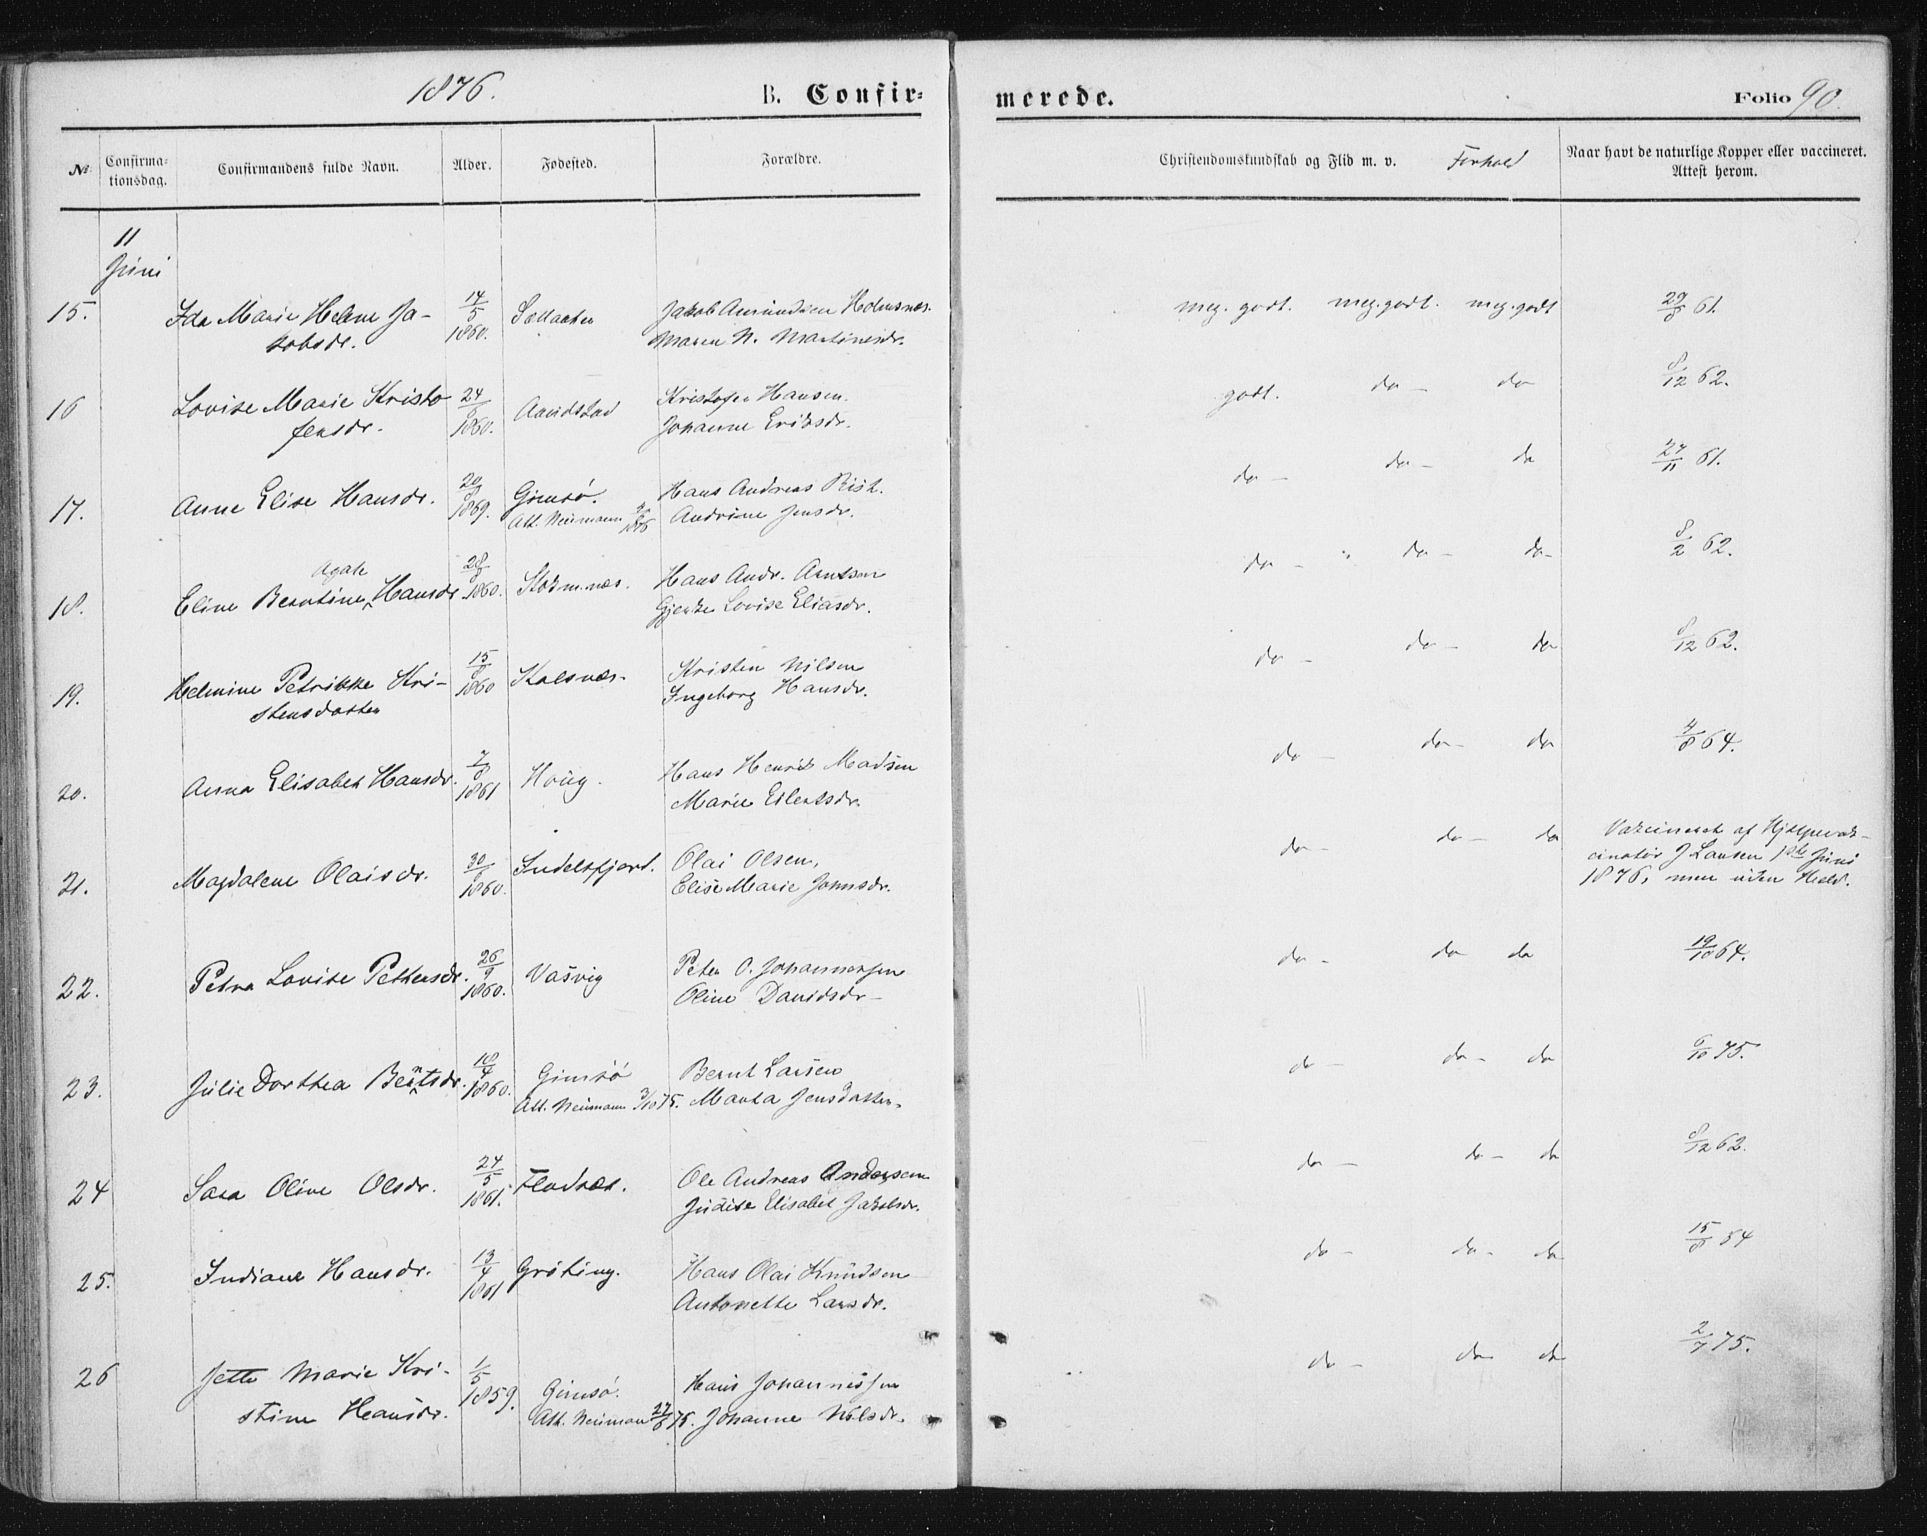 1876.
B. Confir-
merede.
Folio 90.
№
Confirma-
tionsdag.
Confirmandens fulde Navn.
Alder.
Fødested.
Forældre.
Christendomskundskab og Flid m. v. Forhold
Naar havt de naturlige Kopper eller vaccineret.
Attest herom.
11
Juni
15. Ida Marie Helene Ja-
kobsdr.
14/5
1860.
Jakob Amundsen Holmsnæs.
Maren N. Martinesdr.
meg. godt. meg. godt. meg. godt
29/8 61.
16 Lovise Marie Kristo
fersdr.
24/8
1860.
Aaridstad
Kristofer Hansen.
Johanne Eriksdr.
godt. do - do
8/12 62.
17. Anne Elise Hansdr.
Gimsø.
Att. Neumann
Hans Andreas Rist.
Andrine Jensdr.
do - do - do
27/11 61.
18. Eline Berntine Agate Hansdr.
28/8
1860.
Stokmnæs.
Hans Andr. Arntsen
Gjertke Lovise Eliasdr.
do - " do - do -
8/2 62.
19. Helmine Petrikke Kri-
stensdatter
15/8
1860
Kalsnæs.
Kristen Nilsen
Ingeborg Hansdr.
do - do - do
8/12 62.
20. Anna Elisabet Hansdr.
7/8
1861
Houg.
Hans Henrik Madsen
Marie Eilertsdr.
do - do - do
4/8 64.
21. Magdalene Olaisdr.
30/8
1860.
Indelsfjord.
Olai Olsen,
Elise Marie Jonnsdr.
do - do - do
Vakcineret af Hjelpevak-
cinatør J Lausen 1ste Juni
1876, men uden Held.
22. Petra Lovise Pettersdr.
26/9
1860.
Vasvig
Peter O. Johannessen
Oline Davidsdr -
do - do do
19/10 64.
23. Julie Dorthea Berntsdr.
18/4
1860.
Gimsø
Att. Neumann 3/10 75.
Bernt Larsen
Marta Jensdatter.
do - do - do
6/10 75.
24 Sara Oline Olsdr.
24/5
1861.
Flodnæs.
Ole Andreas Andersen
Judite Elisabet Jakobsdr.
do - do - do
8/12 62.
25. Indiane Hansdr.
13/4
1861
Grøting.
Hans Olai Knudsen
Antonette Larsdr.
do - do - do
15/8 54
26 Jette Marie Kri-
stine Hansdr.
1/5
1859.
Gimsø.
Att. Neuman 27/6 75.
Hans Johannessen
Johanne Nilsdr.
do - do do
2/7 75.